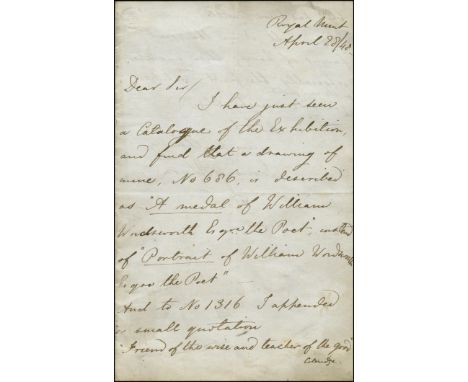 Royal Mint
April 28/48
Dear Sir/
I have just seen
a Catalogue of the Exhibition,
and find that a drawing of
mine, No 686, is described
as "A medal of William
Wordsworth Esqre the Poet", instead
of "Portrait of William Wordsworth
Esqre the Poet" —
And to No 1316 I appended
a small quotation
"Friend of the wise and teacher of the good"